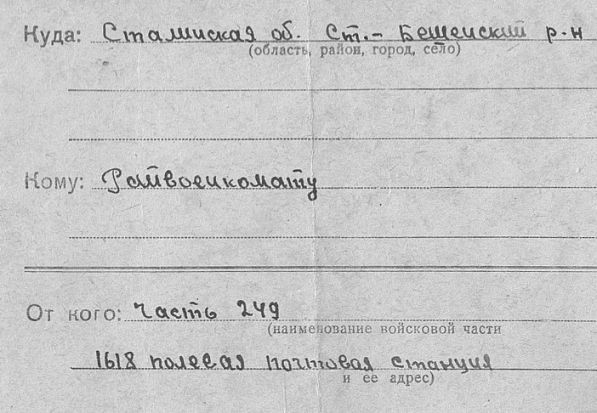 Куда: Сталинская об. Ст.- Бешевский р-н
(область, район, город, село)
Кому: Райвоенкомату
От кого: Часть 249
(наименование войсковой части
1618 полевая почтовая станция
и ее адрес)